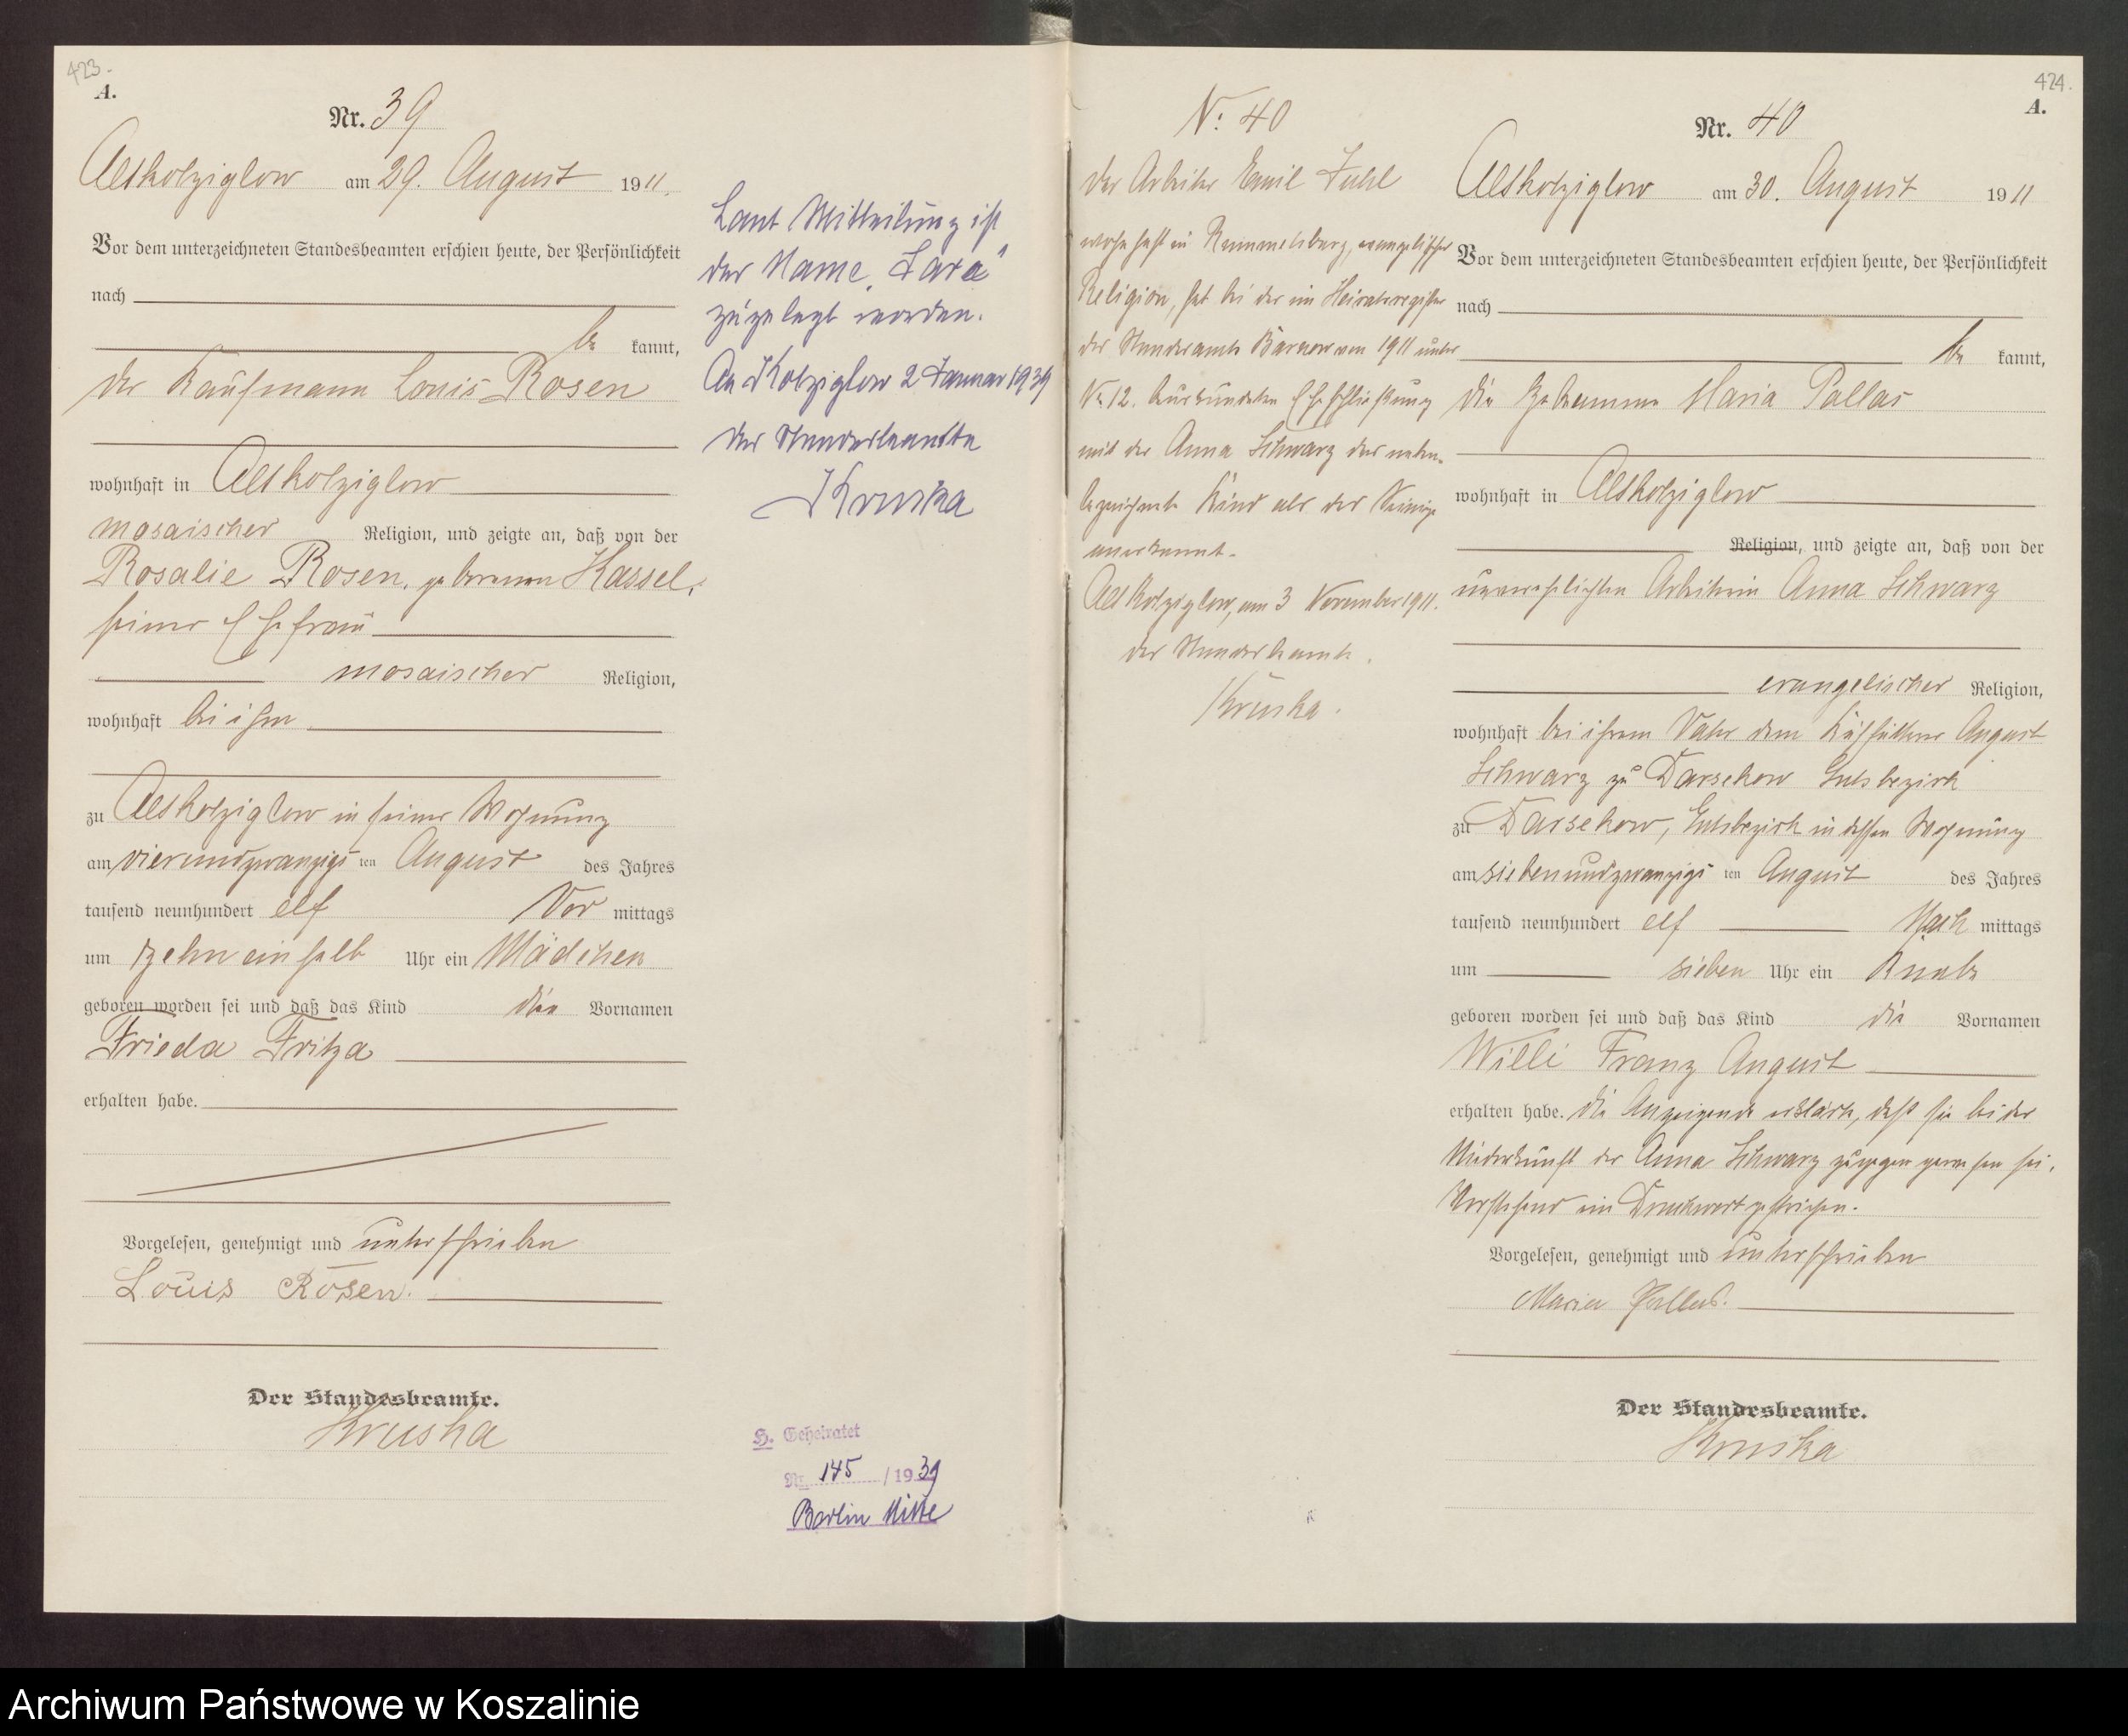 423.
A.
Nr. 39
Altkolziglow am 29. August 1911.
Vor dem unterzeichneten Standesbeamten erschien heute, der Persönlichkeit
nach
be kannt,
der Kaufmann Louis Rosen
wohnhaft in Altkolziglow
mosaischer Religion, und zeigte an, daß von der
Rosalie Rosen, geborenen Kassel,
seiner Ehefrau
mosaischer Religion,
wohnhaft bei ihm
zu Altkolziglow in seiner Wohnung
am vierundzwanzigs ten August des Jahres
tausend neunhundert elf Vor mittags
um zehneinhalb Uhr ein Mädchen
geboren worden sei und daß das Kind die Vornamen
Frieda Fritza
erhalten habe.
Vorgelesen, genehmigt und unterschrieben
Louis Rosen.
Der Standesbeamte.
Kruska
Laut Mitteilung ist
der Name „Sara"
zugelegt worden.
Altkolziglow 2 Januar 1939
Der Standesbeamte
Kruska
H. Geheiratet
Nr. 145 / 1939
Berlin Mitte
No. 40
Der Arbeiter Emil
wohnhaft in Rummelsburg, evangelischer
Religion, hat bei der im Heiratsregister
des Standesamts Barnow von 1911 unter
No 12. beurkundeten Eheschließung
mit der Anna Schwarz das neben-
bezeichnete Kind als das Seinige
anerkannt.
Altkolziglow, am 3 November 1911.
Der Standesbeamte.
Kruska.
424.
A.
Nr. 40
Altkolziglow am 30. August 1911
Vor dem unterzeichneten Standesbeamten erschien heute, der Persönlichkeit
nach
be kannt,
die Hebamme Maria Pallas
wohnhaft in Altkolziglow
Religion, und zeigte an, daß von der
unverehelichten Arbeiterin Anna Schwarz
evangelischer Religion,
wohnhaft bei ihrem Vater dem Kuhfütterer August
Schwarz zu Darsekow Gutsbezirk
zu Darsekow, Gutsbezirk in dessen Wohnung
am siebenundzwanzigs ten August des Jahres
tausend neunhundert elf Nach mittags
um sieben Uhr ein Knabe
geboren worden sei und daß das Kind die Vornamen
Willi Franz August
erhalten habe. Die Anzeigende erklärte, daß sie bei der
Niederkunft der Anna Schwarz zugegen gewesen sei.
Vorstehend ein Druckwort gestrichen.
Vorgelesen, genehmigt und unterschrieben
Maria Pallas.
Der Standesbeamte.
Kruska
Archiwum Państwowe w Koszalinie